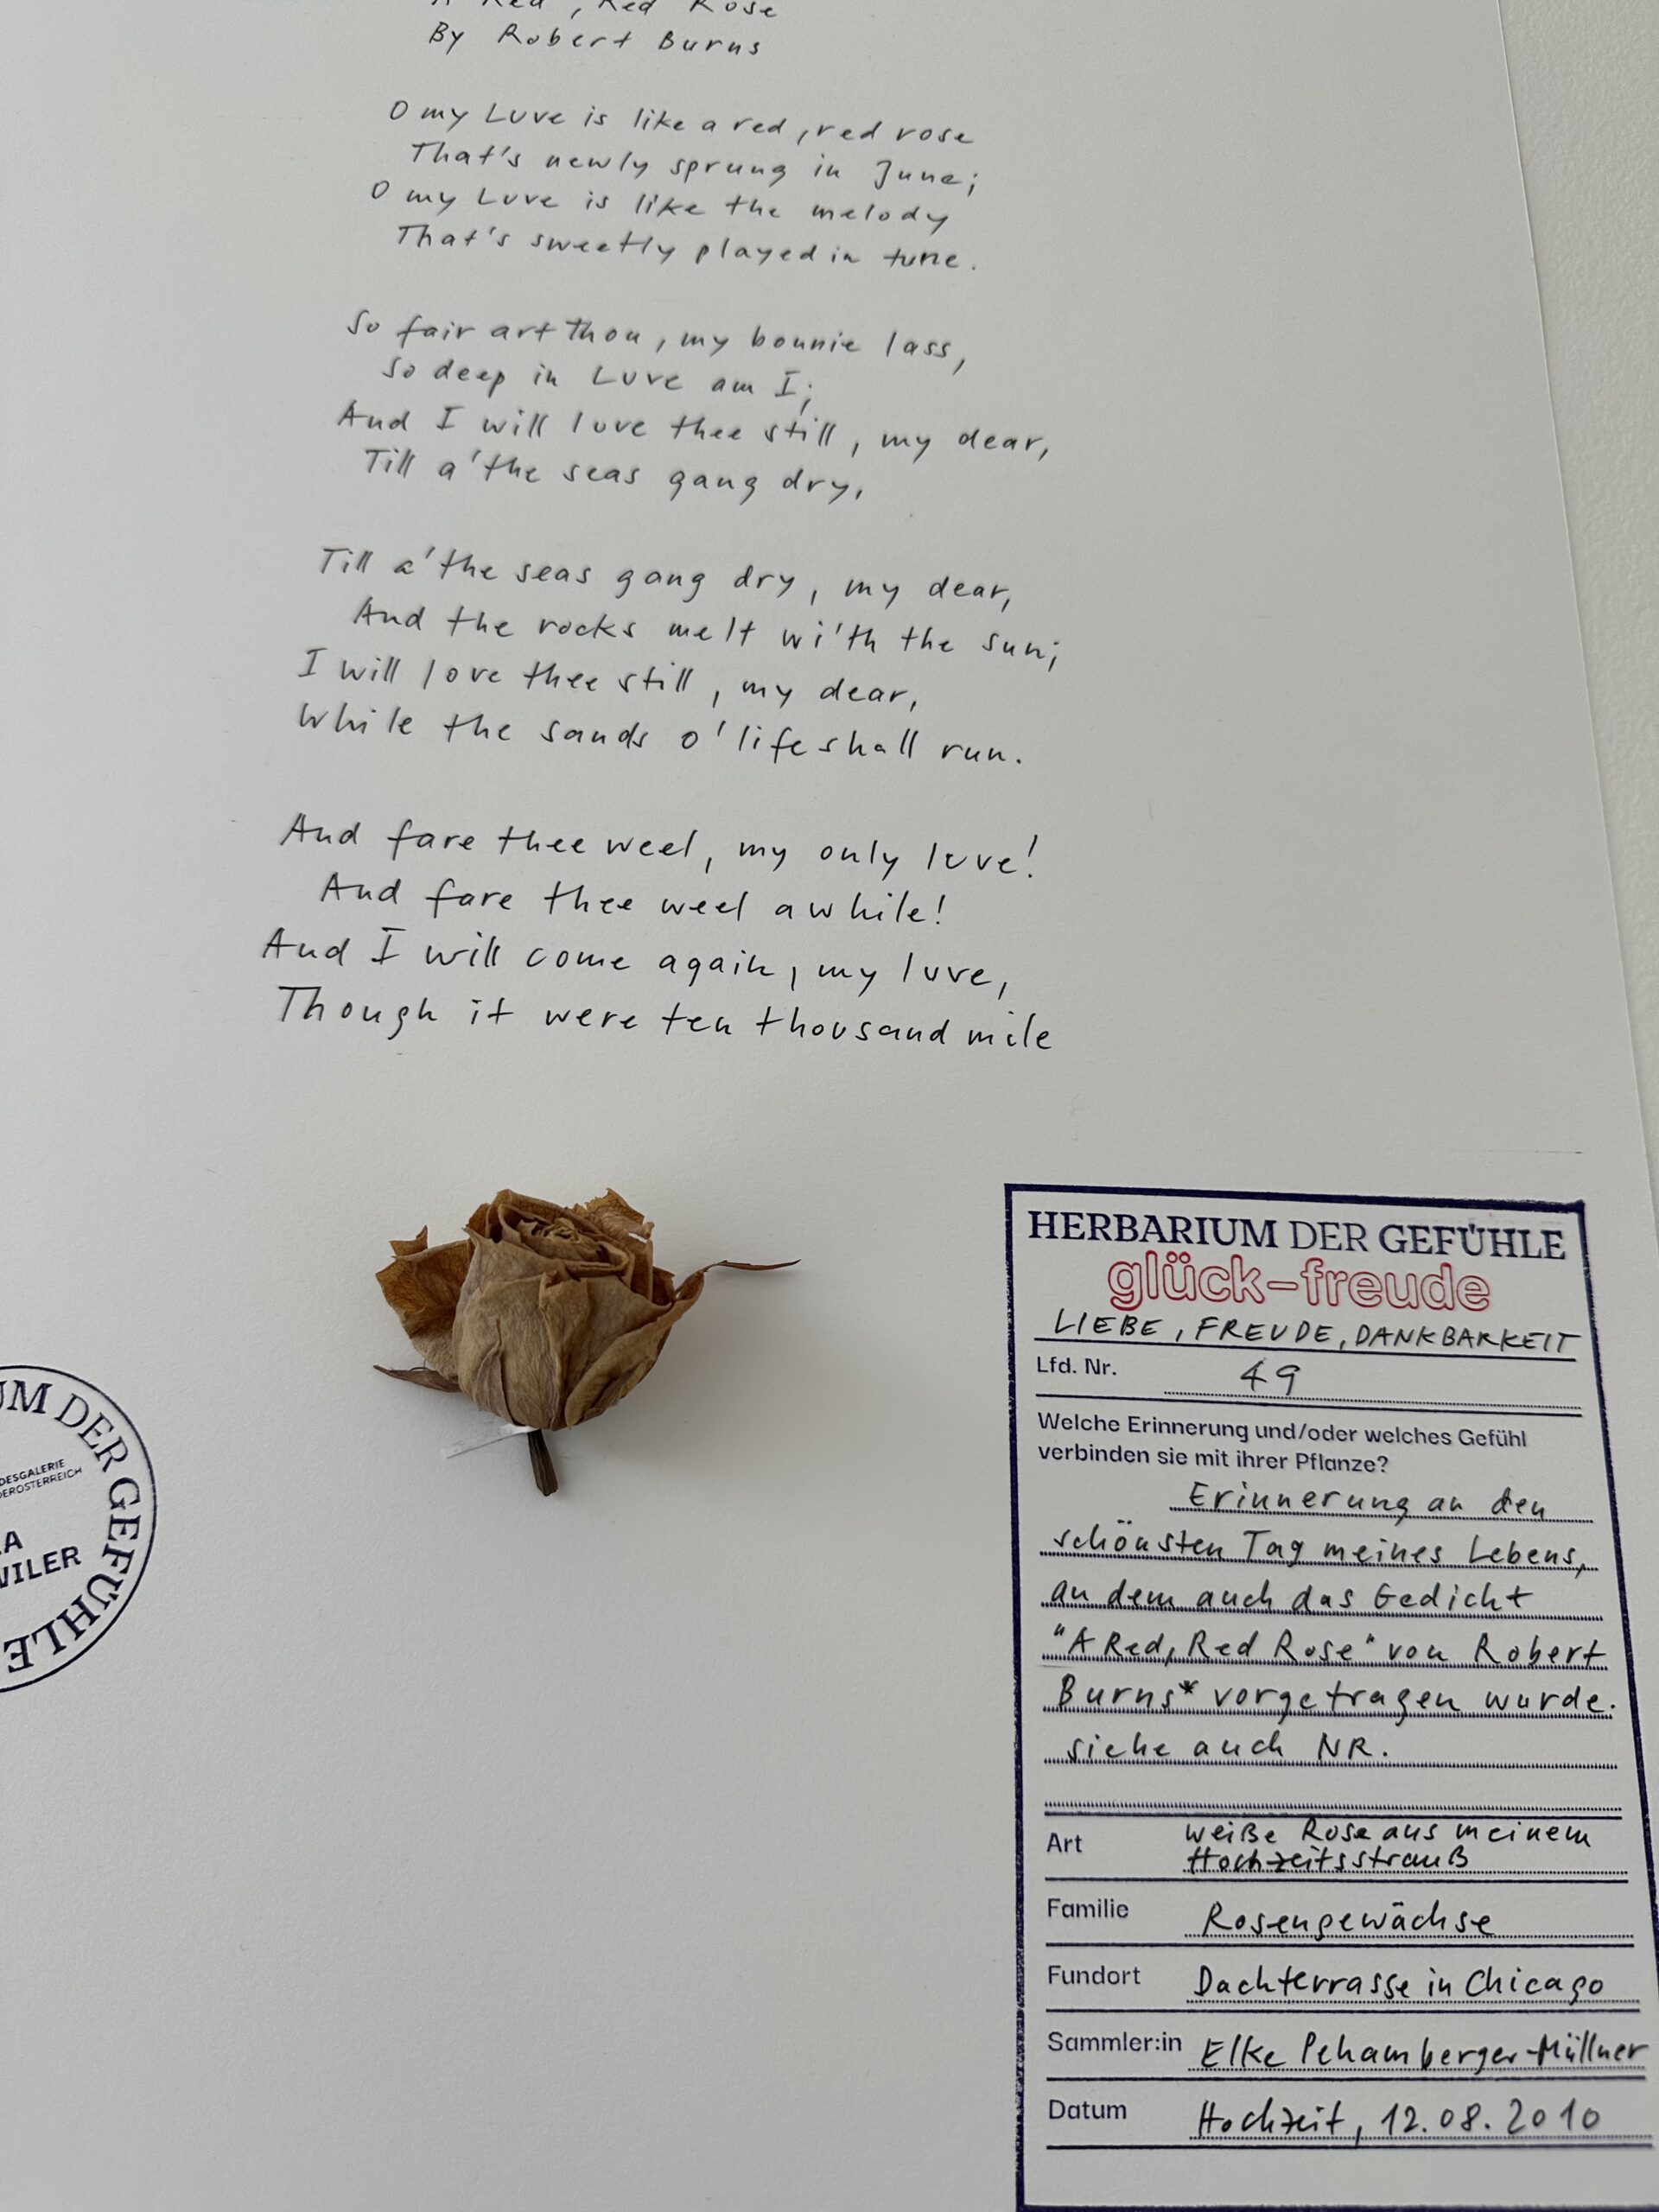 A Red, Red Rose
By Robert Burns
O my Luve is like a red, red rose
That's newly sprung in June;
O my Luve is like the melody
That's sweetly played in tune.
So fair art thou, my bonnie lass,
So deep in Luve am I;
And I will luve thee still, my dear,
Till a' the seas gang dry,
Till a' the seas gang dry, my dear,
And the rocks melt wi'th the sun;
I will love thee still, my dear,
While the sands o' life shall run.
And fare thee weel, my only luve!
And fare thee weel awhile!
And I will come again, my luve,
Though it were ten thousand mile
UM DER GEFÜHLE
DESGALERIE
DERÖSTERREICH
A
WILER
HERBARIUM DER GEFÜHLE
glück-freude
LIEBE, FREUDE, DANKBARKEIT
Lfd. Nr. 49
Welche Erinnerung und/oder welches Gefühl
verbinden sie mit ihrer Pflanze?
Erinnerung an den
schönsten Tag meines Lebens,
an dem auch das Gedicht
"A Red, Red Rose" von Robert
Burns* vorgetragen wurde.
siehe auch NR.
Art weiße Rose aus meinem
Hochzeitsstrauß
Familie Rosengewächse
Fundort Dachterrasse in Chicago
Sammler:in Elke Pehamberger-Müllner
Datum Hochzeit, 12.08.2010